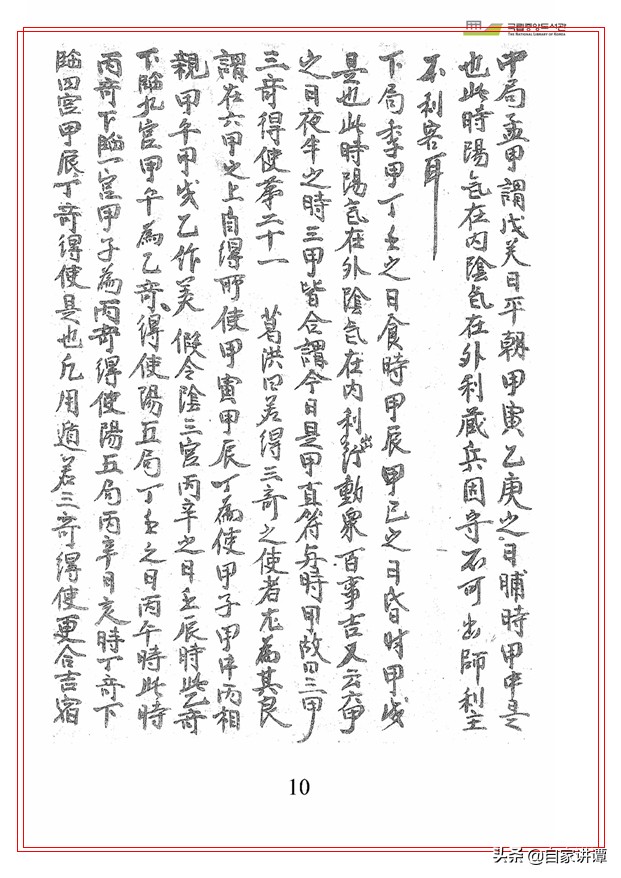 국립중앙도서관
THE NATIONAL LIBRARY OF KOREA
中局孟甲謂戊癸日平朝甲寅乙庚之日晡時甲申是
也此時陽气在内陰气在外利藏兵固守不可出師利主
不利客耳
下局季甲丁壬之日食時甲辰甲己之日昏时甲戌
是也此時陽气在外陰气在内利出行動衆百事吉又云六甲
之日夜半之時三甲皆合謂今日是甲直符与時甲故曰三甲
三奇得使苐二十一 葛洪曰若得三奇之使者尤為其良
謂在六甲之上自得所使甲寅甲辰丁為使甲子甲申丙相
親甲午甲戌乙作美 假令陰三宫丙辛之日壬辰時此乙奇
下臨九宫甲午為乙奇得使陽五局丁壬之日丙午時此時
丙奇下臨一宫甲子為丙奇得使陽五局丙辛日亥時丁奇下
臨四宫甲辰丁奇得使是也凡用遁若三奇得使更合吉宿
10
头条 @自家讲谭